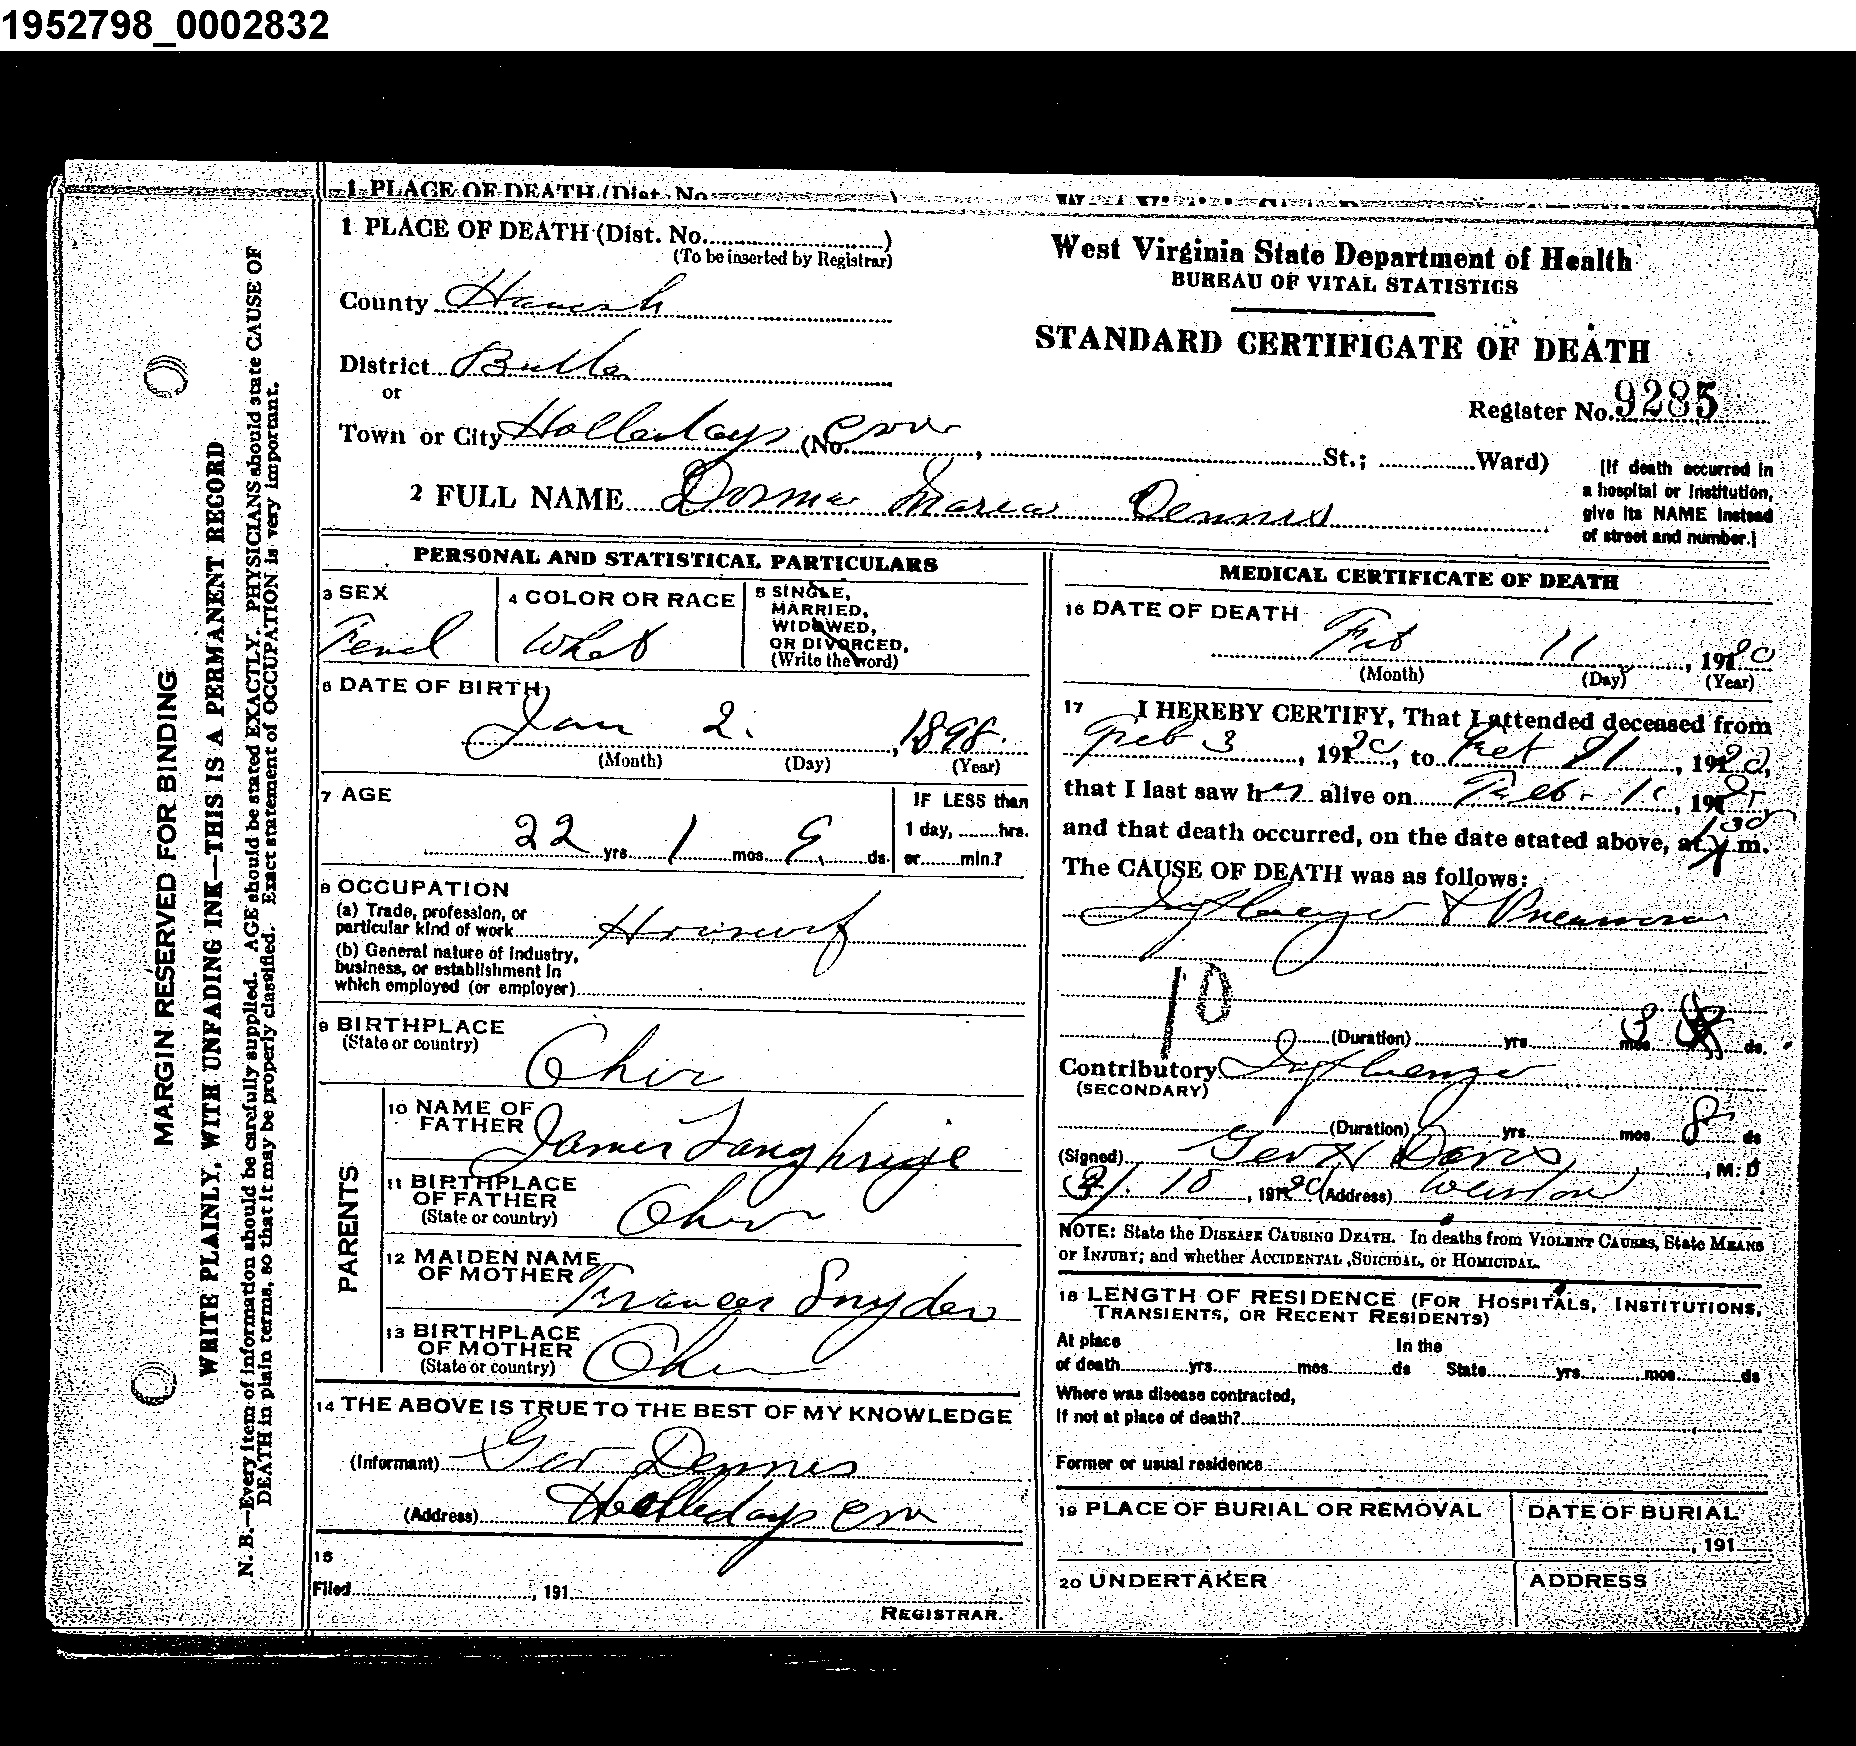 1952798_0002832
1 PLACE OF DEATH (Dist. No.
1 PLACE OF DEATH (Dist. No. )
(To be inserted by Registrar)
County Hancock
District Butler
or
Town or City Holledays Cove (No. , St.; Ward)
West Virginia State Department of Health
BUREAU OF VITAL STATISTICS
STANDARD CERTIFICATE OF DEATH
Register No. 9285
[If death occurred in
a hospital or institution,
give its NAME instead
of street and number.]
2 FULL NAME Dorma Maria Dennis
MARGIN RESERVED FOR BINDING
WRITE PLAINLY, WITH UNFADING INK—THIS IS A PERMANENT RECORD
N. B.—Every item of information should be carefully supplied. AGE should be stated EXACTLY. PHYSICIANS should state CAUSE OF
DEATH in plain terms, so that it may be properly classified. Exact statement of OCCUPATION is very important.
PERSONAL AND STATISTICAL PARTICULARS
3 SEX
Femal
4 COLOR OR RACE
5 SINGLE,
MARRIED,
WIDOWED,
OR DIVORCED,
(Write the word)
6 DATE OF BIRTH
Jan 2. , 1898.
(Month) (Day) (Year)
7 AGE
22 yrs. 1 mos. 9 ds.
IF LESS than
1 day, hrs.
or min.?
8 OCCUPATION
(a) Trade, profession, or
particular kind of work Housewf
(b) General nature of industry,
business, or establishment in
which employed (or employer)
9 BIRTHPLACE
(State or country)
Ohio
PARENTS
10 NAME OF
FATHER
James
11 BIRTHPLACE
OF FATHER
(State or country)
Ohio
12 MAIDEN NAME
OF MOTHER
Frances Snyder
13 BIRTHPLACE
OF MOTHER
(State or country)
Ohio
14 THE ABOVE IS TRUE TO THE BEST OF MY KNOWLEDGE
(Informant) Geo Dennis
(Address) Holledays Cov
15
Filed , 191
REGISTRAR.
MEDICAL CERTIFICATE OF DEATH
16 DATE OF DEATH
Feb 11 , 1920
(Month) (Day) (Year)
17 I HEREBY CERTIFY, That I attended deceased from
Feb 3 , 1920, to Feb 11 , 1920,
that I last saw her alive on Feb. , 19
and that death occurred, on the date stated above, at 130 m.
The CAUSE OF DEATH was as follows:
Influenza & Pneumonia
10
(Duration) yrs. mos. 3 ds.
Contributory Influenza
(SECONDARY)
(Duration) yrs. mos. 8 ds
(Signed) Geo Davis , M. D
10 , 1920 (Address) Weirton
NOTE: State the DISEASE CAUSING DEATH. In deaths from VIOLENT CAUSES, State MEANS
OR INJURY; and whether ACCIDENTAL ,SUICIDAL, or HOMICIDAL.
18 LENGTH OF RESIDENCE (FOR HOSPITALS, INSTITUTIONS,
TRANSIENTS, OR RECENT RESIDENTS)
At place In the
of death yrs. mos. ds State yrs. mos. ds
Where was disease contracted,
If not at place of death?
Former or usual residence
19 PLACE OF BURIAL OR REMOVAL
DATE OF BURIAL
, 191
20 UNDERTAKER
ADDRESS